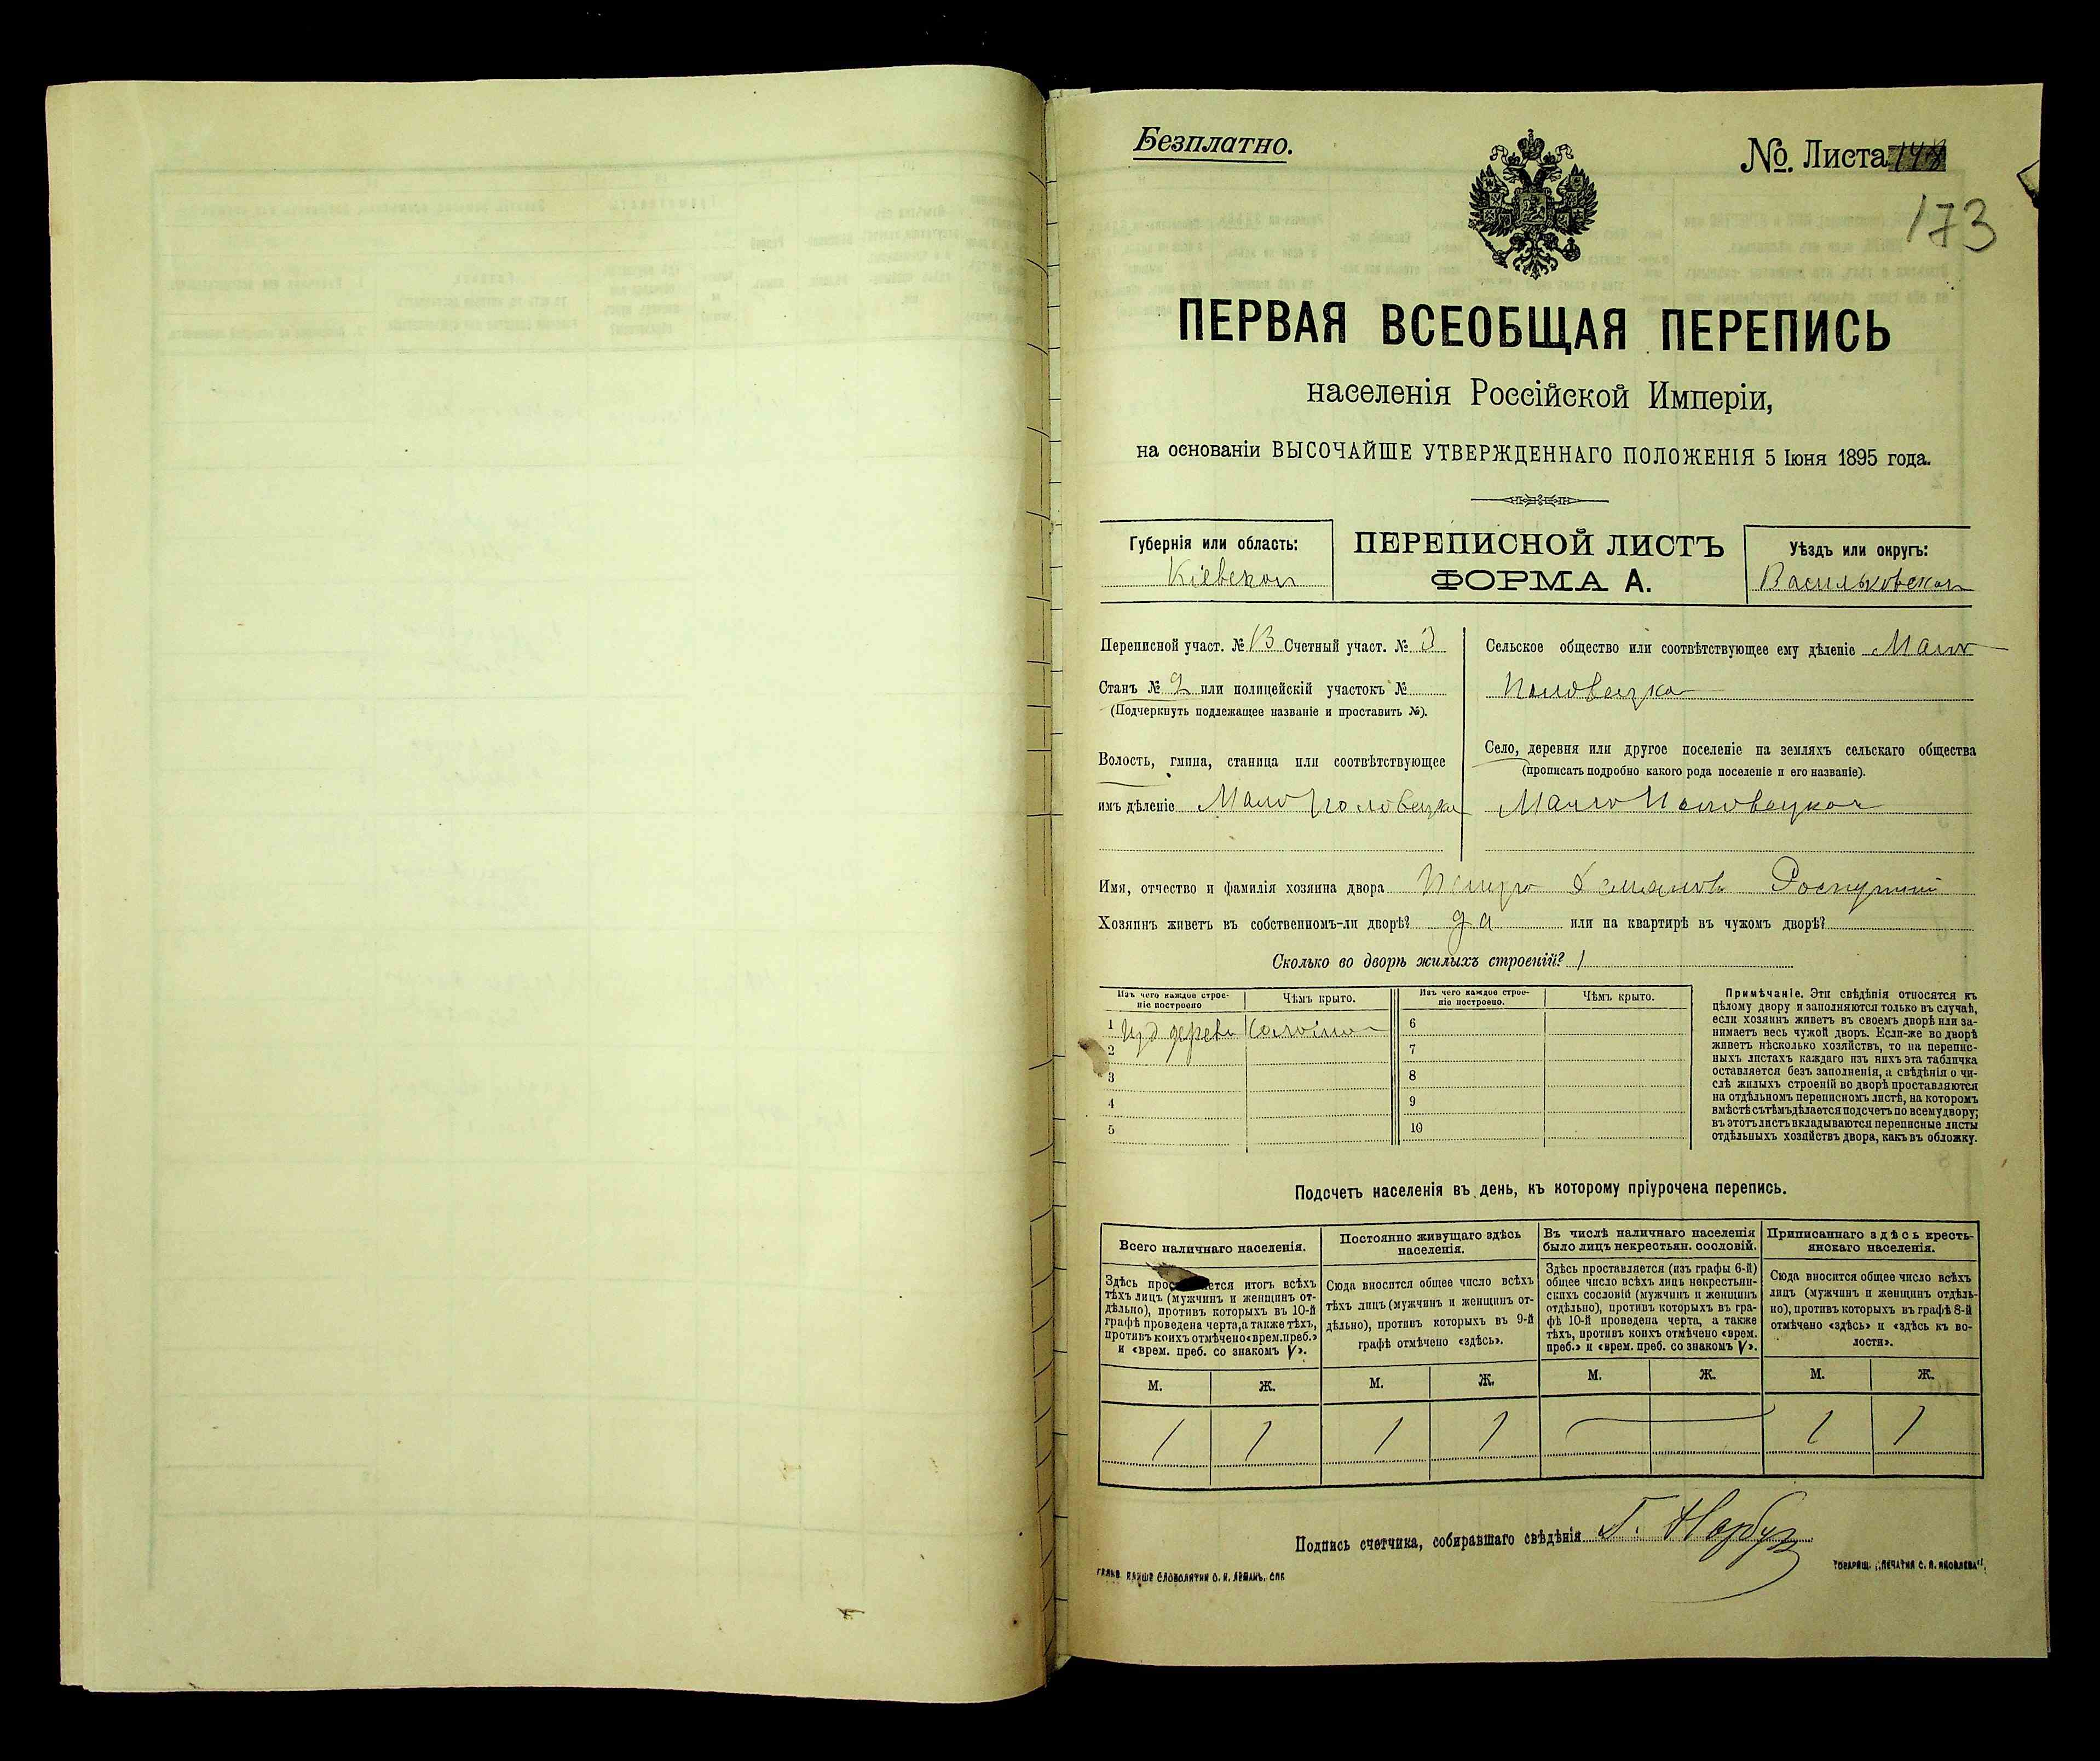 Безплатно.
№ Листа
173
ПЕРВАЯ ВСЕОБЩАЯ ПЕРЕПИСЬ
населенія Россійской Имперіи,
на основаніи ВЫСОЧАЙШЕ УТВЕРЖДЕННАГО ПОЛОЖЕНІЯ 5 Іюня 1895 года.
Губернія или область:
Кіевская
ПЕРЕПИСНОЙ ЛИСТЪ
ФОРМА А.
Уѣздъ или округъ:
Васильковская
Переписной участ. № 13 Счетный участ. № 3
Станъ № 2 или полицейскій участокъ №
(Подчеркнуть подлежащее названіе и проставить №).
Волость, гмина, станица или соотвѣтствующее
имъ дѣленіе Мало Половецка
Сельское общество или соотвѣтствующее ему дѣленіе Мало
Половецка
Село, деревня или другое поселеніе на земляхъ сельскаго общества
(прописать подробно какого рода поселеніе и его названіе).
Мало Половецкая
Имя, отчество и фамилія хозяина двора Петро
Хозяинъ живетъ въ собственномъ-ли дворѣ? да или на квартирѣ въ чужомъ дворѣ?
Сколько во дворѣ жилыхъ строеній? 1
Изъ чего каждое строе-
ніе построено
Чѣмъ крыто.
Изъ чего каждое строе-
ніе построено.
Чѣмъ крыто.
1 из дерева соломою
6
2
7
3
8
4
9
5
10
Примѣчаніе. Эти свѣдѣнія относятся къ
цѣлому двору и заполняются только въ случаѣ,
если хозяинъ живетъ въ своемъ дворѣ или за-
нимаетъ весь чужой дворъ. Если-же во дворѣ
живетъ нѣсколько хозяйствъ, то на перепис-
ныхъ листахъ каждаго изъ нихъ эта табличка
оставляется безъ заполненія, а свѣдѣнія о чи-
слѣ жилыхъ строеній во дворѣ проставляются
на отдѣльномъ переписномъ листѣ, на которомъ
вмѣстѣ съ тѣмъ дѣлается подсчетъ по всему двору;
въ этотъ листъ вкладываются переписные листы
отдѣльныхъ хозяйствъ двора, какъ въ обложку.
Подсчетъ населенія въ день, къ которому пріурочена перепись.
Всего наличнаго населенія.
Здѣсь итогъ всѣхъ
тѣхъ лицъ (мужчинъ и женщинъ от-
дѣльно), противъ которыхъ въ 10-й
графѣ проведена черта, а также тѣхъ,
противъ коихъ отмѣчено «врем. преб.»
и «врем. преб. со знакомъ V».
Постоянно живущаго здѣсь
населенія.
Сюда вносится общее число всѣхъ
тѣхъ лицъ (мужчинъ и женщинъ от-
дѣльно), противъ которыхъ въ 9-й
графѣ отмѣчено «здѣсь».
Въ числѣ наличнаго населенія
было лицъ некрестьян. сословій.
Здѣсь проставляется (изъ графы 6-й)
общее число всѣхъ лицъ некрестьян-
скихъ сословій (мужчинъ и женщинъ
отдѣльно), противъ которыхъ въ гра-
фѣ 10-й проведена черта, а также
тѣхъ, противъ коихъ отмѣчено «врем.
преб.» и «врем. преб. со знакомъ V».
Приписаннаго здѣсь кресть-
янскаго населенія.
Сюда вносится общее число всѣхъ
лицъ (мужчинъ и женщинъ отдѣль-
но), противъ которыхъ въ графѣ 8-й
отмѣчено «здѣсь» и «здѣсь къ во-
лости».
М. Ж. М. Ж. М. Ж. М. Ж.
1 1 1 1 — 1 1
Подпись счетчика, собиравшаго свѣдѣнія Г. Нарбут
ТОВАРИЩ. „ПЕЧАТНЯ С. П. ЯКОВЛЕВА“.